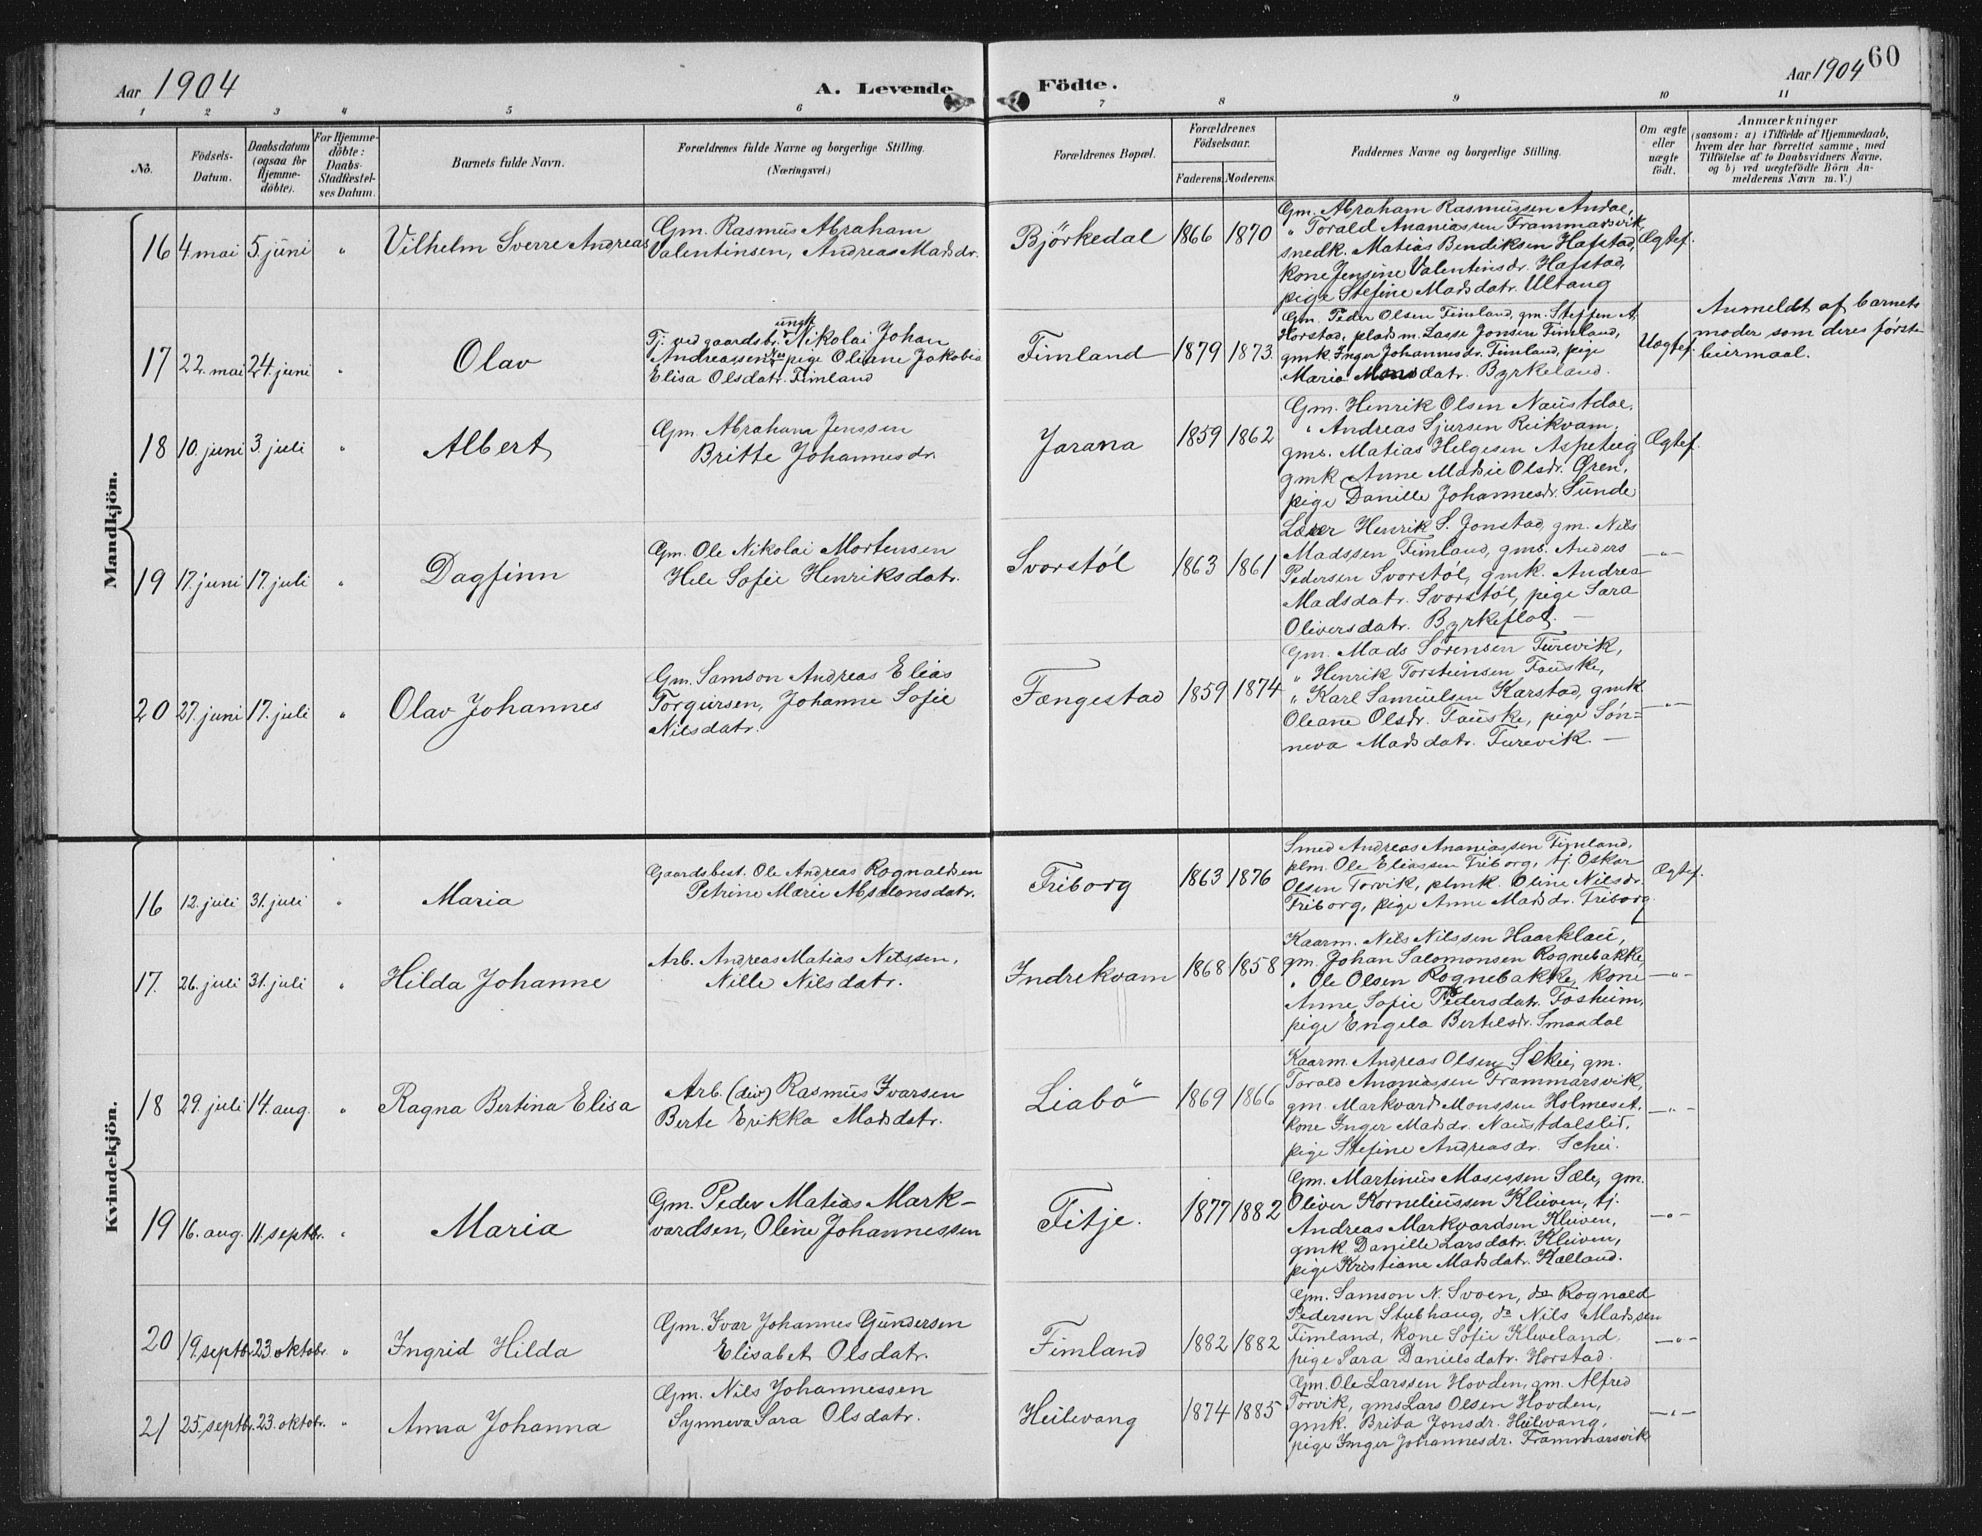 Aar 1904
A. Levende
Födte.
Aar 1904
60
1 2 3 4 5 6 7 8 9 10 11
No.
Födsels-
Datum.
Daabsdatum
(ogsaa for
Hjemme-
döbte).
For Hjemme-
döbte:
Daabs-
Stadfæstel-
ses Datum.
Barnets fulde Navn.
Forældrenes fulde Navne og borgerlige Stilling.
(Næringsvei.)
Forældrenes Bopæl.
Forældrenes
Födselsaar.
Faderens. Moderens.
Faddernes Navne og borgerlige Stilling.
Om ægte
eller
uægte
födt.
Anmærkninger
(saasom: a) i Tilfælde af Hjemmedaab,
hvem der har forrettet samme, med
Tilföielse af to Daabsvidners Navne,
og b) ved uægtefödte Börn An-
melderens Navn m. V.)
Mandkjön.
16 4 mai 5 juni " Vilhelm Sverre Andreas
Gm. Rasmus Abraham
Valentinsen, Andrea Madsdr.
Björkedal 1866 1870
Gm. Abraham Rasmussen Andal,
" Torald Ananiassen Frammarsvik,
snedk. Matias Bendiksen Hafstad,
kone Jensine Valentinsdr. Hafstad,
pige Stefine Madsdatr. Ultang
Ægtef.
17 22. mai 24. juni " Olav
Tj. ved gaardsbr. ungk. Nikolai Johan
Andreassen pige Oliane Jakobia
Elisa Olsdatr. Fimland
Fimland 1879 1873.
Gm. Peder Olsen Fimland, gm. Steffen A.
Horstad, pladsm. Lasse Jonsen Fimland,
gmk. Inger Johannesdr. Fimland, pige
Maria Monsdatr. Byrkeland.
Uægtef.
Anmeldt af barnets
moder som deres første
leiermaal.
18 10. juni 3. juli " Albert
Gm. Abraham Jenssen
Britte Johannesdr.
Jarana 1859 1862
Gm. Henrik Olsen Naustdal,
" Andreas Sjursen Reikvam,
gms. Matias Helgesen Aspeteig
gmk Anne Marie Olsdr. Øren,
pige Danille Johannesdr. Sunde
Ægtef.
19 17. juni 17. juli " Dagfinn
Gm. Ole Nikolai Mortensen
Hele Sofie Henriksdatr.
Svorstöl 1863 1861
Lærer Henrik S. Jonstad, gm. Nils
Madssen Fimland, gms. Anders
Pedersen Svorstöl, gmk. Andrea
Madsdatr. Svorstöl, pige Sara
Oliversdatr. Byrkeflot. —
— " —
20 27. juni 17. juli " Olav Johannes
Gm. Samson Andreas Elias
Torgersen, Johanne Sofie
Nilsdatr.
Fængestad 1859 1874
Gm. Mads Sörensen Furevik,
" Henrik Torsteinsen Fauske,
" Karl Samuelsen Karstad, gmk
Oleane Olsdr. Fauske, pige Søn=
neva Madsdatr. Furevik. —
— " —
Kvindekjön.
16 12. juli 31. juli " Maria
Gaardsbest. Ole Andreas Rognaldsen
Petrine Marie Absalonsdatr.
Friborg 1863 1876
Smed Andreas Ananiassen Fimland,
plm. Ole Eliassen Friborg, tj. Oskar
Olsen Torvik, plmk. Oline Nilsdr.
Friborg, pige Anne Madsdr. Friborg
Ægtef.
17. 26. juli 31. juli " Hilda Johanne
Arb. Andreas Matias Nilssen,
Nille Nilsdatr.
Indrekvam 1868 1858
Kaarm. Nils Nilssen Haarklau,
gm. Johan Salomonsen Rognebakke,
" Ole Olsen Rognebakke, kone
Anne Sofie Pedersdatr. Fosheim,
pige Engela Bertelsdr. Smaadal
— " —
18 29. juli 14. aug. " Ragna Bertina Elisa
Arb. (div) Rasmus Ivarsen
Berte Erikka Madsdatr.
Liabö 1869 1866
Kaarm. Andreas Olsen Schei, gm.
Torald Ananiassen Frammarsvik,
gm. Markvard Monssen Holmeset,
kone Inger Madsdr. Naustdalslid,
pige Stefine Andreasdr. Schei.
— " —
19 16. aug. 11. septbr. " Maria
Gm. Peder Matias Mark-
vardsen, Oline Johannessen
Fitje. 1877 1882
Gm. Martinus Masessen Sæle, gm.
Oliver Korneliussen Kleiven, tj.
Andreas Markvardsen Kleiven,
gmk Danielle Larsdatr. Kleiven,
pige Kristiane Madsdatr. Kalland.
— " —
20 19. septbr. 23. oktobr. " Ingrid Hilda
Gm. Ivar Johannes Gundersen
Elisabet Olsdatr.
Fimland 1882 1882
Gm. Samson N. Svoen, do Rognald
Pedersen Stubhaug, do Nils Madssen
Fimland, kone Sofie Kleveland,
pige Sara Danielsdatr. Horstad.
— " —
21 25. septbr. 23. oktobr. " Anna Johanna
Gm. Nils Johannessen
Synneva Sara Olsdatr.
Heilevang 1874 1885
Gm. Ole Larssen Hovden, gm. Alfred
Torvik, gms Lars Olsen Hovden,
gmk. Brita Jonsdr. Heilevang,
pige Inger Johannesdr. Frammarsvik
— " —